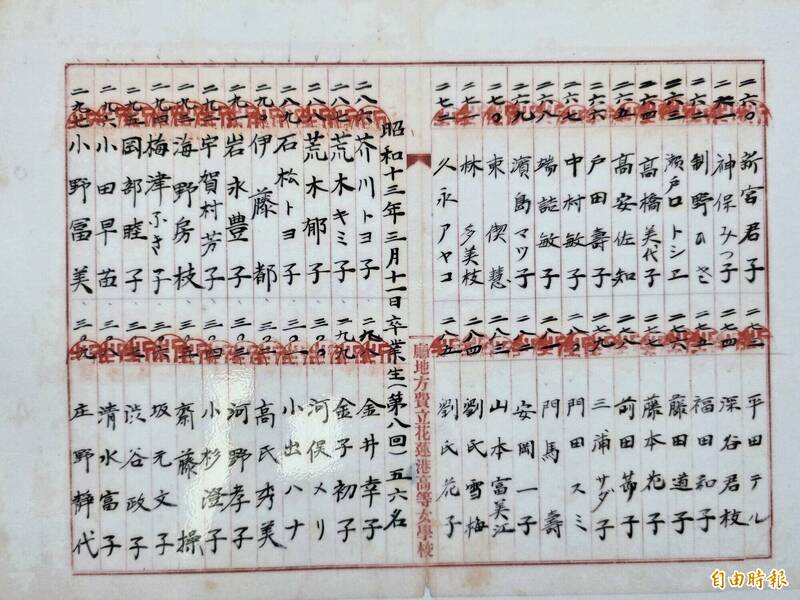 二六〇 新宮君子
二六一 神保みつ子
二六二 制野の
二六三 瀬戸口トシヱ
二六四 高橋美代子
二六五 高安佐知
二六六 戸田壽子
二六七 中村敏子
二六八 端詰敏子
二六九 濱島マツ子
二七〇 東 慧
二七一 林多美枝
二七二 久永アヤコ
二七三 平田テル
二七四 深谷君枝
二七五 福田和子
二七六 藤田道子
二七七 藤本花子
二七八 前田節子
二七九 三浦サダ子
二八〇 門田スミ
二八一 門馬壽
二八二 安岡一子
二八三 山本富美江
二八四 劉氏雪梅
二八五 劉氏花子
廳地方費立花蓮港高等女學校
昭和十三年三月十一日卒業生(第八回)五六名
二八六 芥川トヨ子
二八七 荒木キミ子
二八八 荒木郁子
二八九 石松トヨ子
二九〇 伊藤都
二九一 岩永豊子
二九二 宇賀村芳子
二九三 海野房枝
二九四 梅津ふき子
二九五 岡部睦子
二九六 小田早苗
二九七 小野冨美
二九八 金井幸子
二九九 金子初子
三〇〇 河俣メリ
三〇一 小出ハナ
三〇二 高氏秀美
三〇三 河野孝子
三〇四 小杉澄子
三〇五 齋藤操
三〇六 坂元文子
三〇七 渋谷政子
三〇八 清水富子
三〇九 庄野静代
自由時報